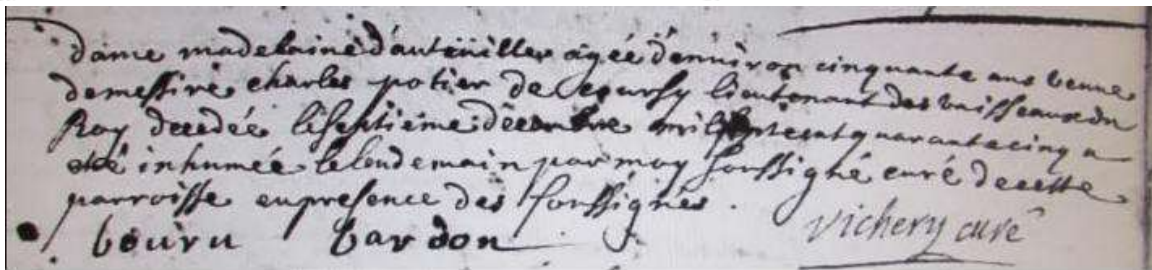 dame madelaine d'auteuiller agée d'enuiron cinquante ans veuue
de messire charles potier de Courssy lieutenant des vaisseaux du
Roy decedée le septieme decembre mil sept cent quarante cinq a
eté inhumée le lendemain par moy soussigné curé de cette
parroisse en presence des soussignés.
bouru bardon Vichery curé